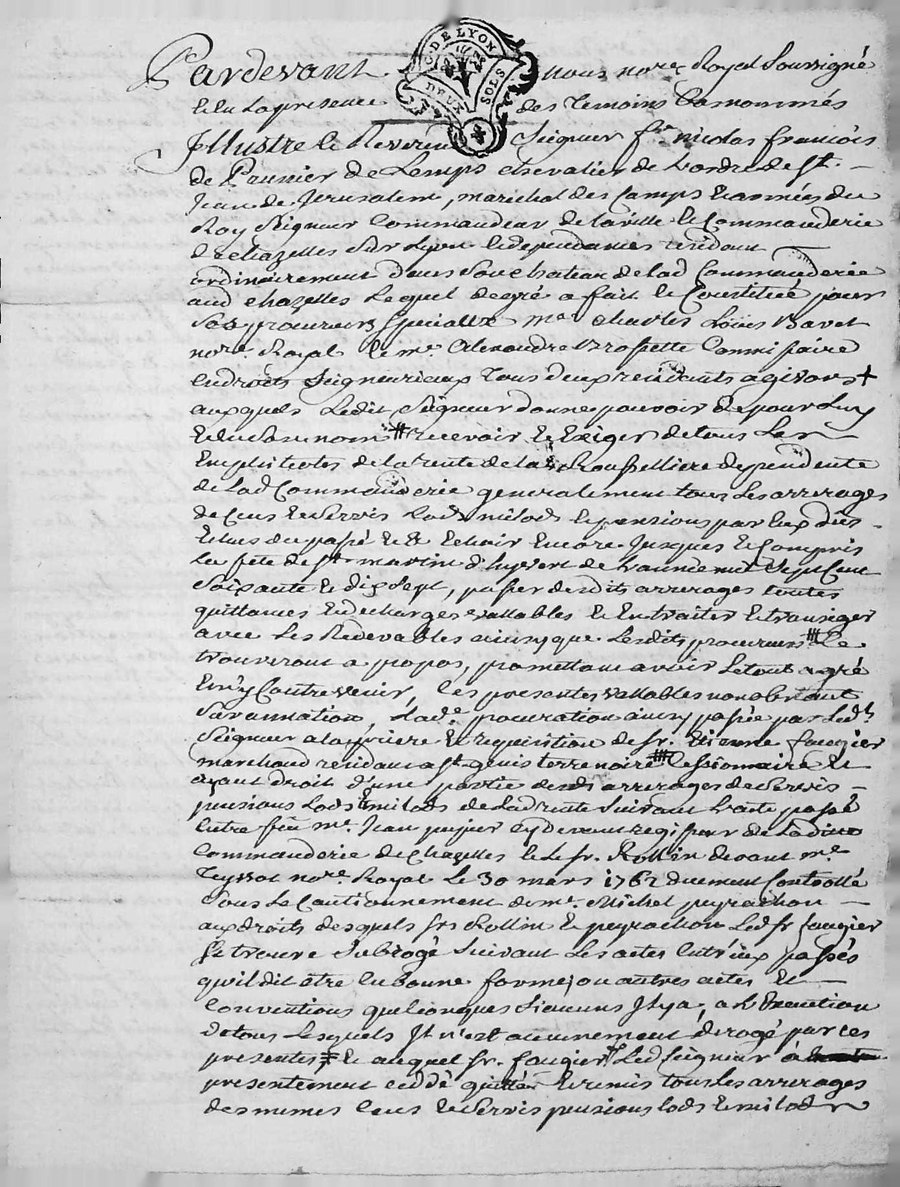 G. DE LYON
DEUX SOLS
Pardevant nous no.re Royal Soussigné
Et en la presence des Temoins bas nommés
Illustre Le Reverend Seigneur fr. nicolas françois
de Prunier de Lemps chevalier de L'ordre de St.
Jean de Jerusalem, marechal des Camps & armées du
Roy Seigneur Commandeur de la ville & Commanderie
de chazelles Sur Lyon & dependances residant
ordinairement dans Son chateau de lad. Commanderie
aud. chazelles Lequel de gré a fait & Constitué pour
Ses procureurs Speciaux me. charles Loüis Bavet
no.re Royal & me. Alexandre Brossette Commissaire
en droits Seigneuriaux Tous deux residants a givors +
auxquels Ledit Seigneur donne pouvoir de pour Luy
Et en Son nom # recevoir & Exiger de tous Les
Emphiteotes de la rente de la Roussilliere dependente
de lad. Commanderie generalement tous Les arrerages
de Cens & Servis Lods milods & pensions par Eux dûs
du passé & a Echoir Encore Jusques & Compris
La fête de St. martin d'hyver de L'année mil Sept Cent
Soixante & dix Sept, passer desdits arrerages toutes
quittances & decharges vallables & En traiter & transiger
avec Les Redevables ainsy que Lesdits procureurs # Le
trouveront a propos, promettant avoir Le tout agréé
& n'y Contrevenir, Les presentes vallables nonobstant
Surannation, Lad.e procuration ainsy passée par Led.
Seigneur a la priere & requisition de Sr. Etienne faugier
marchand residant a St. genis terre noire # Cessionnaire &
ayant droit d'une partie desd. arrerages de Servis
pensions Lods & milods de Ladite rente Suivant L'acte passé
Entre feu me. Jean cy devant regisseur de Ladite
Commanderie de Chazelles & Le Sr. Rollin devant me.
Teyssot no.re Royal Le 30 mars 1762 duement Controllé
Sous Le Cautionnement de me. Michel peyrachon
aux droits desquels Srs Rollin & peyrachon Led. Sr faugier
Se trouve Subrogé Suivant Les actes Entr'eux passés
qu'il dit être En bonne forme, ou autres actes &
Conventions quelconques Si aucuns Il y a, a L'Execution
de tous Lesquels Il n'est aucunement derogé par ces
presentes # & auquel Sr. faugier Led. Seigneur à
presentement ceddé quitté & remis tous Les arrerages
des mêmes Cens & Servis pensions lods & milods